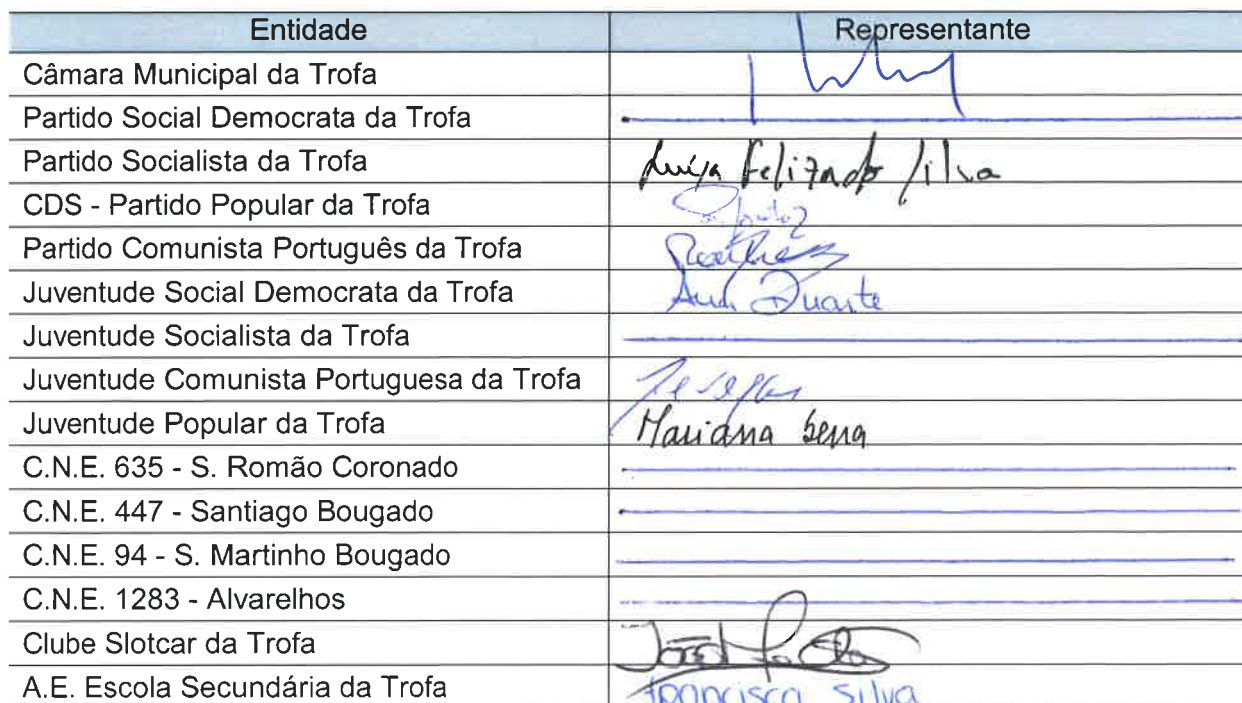 Entidade Representante
Câmara Municipal da Trofa
Partido Social Democrata da Trofa
Partido Socialista da Trofa Luísa Felizardo Silva
CDS - Partido Popular da Trofa
Partido Comunista Português da Trofa
Juventude Social Democrata da Trofa Ana Duarte
Juventude Socialista da Trofa
Juventude Comunista Portuguesa da Trofa
Juventude Popular da Trofa Mariana Serra
C.N.E. 635 - S. Romão Coronado
C.N.E. 447 - Santiago Bougado
C.N.E. 94 - S. Martinho Bougado
C.N.E. 1283 - Alvarelhos
Clube Slotcar da Trofa
A.E. Escola Secundária da Trofa Francisca Silva